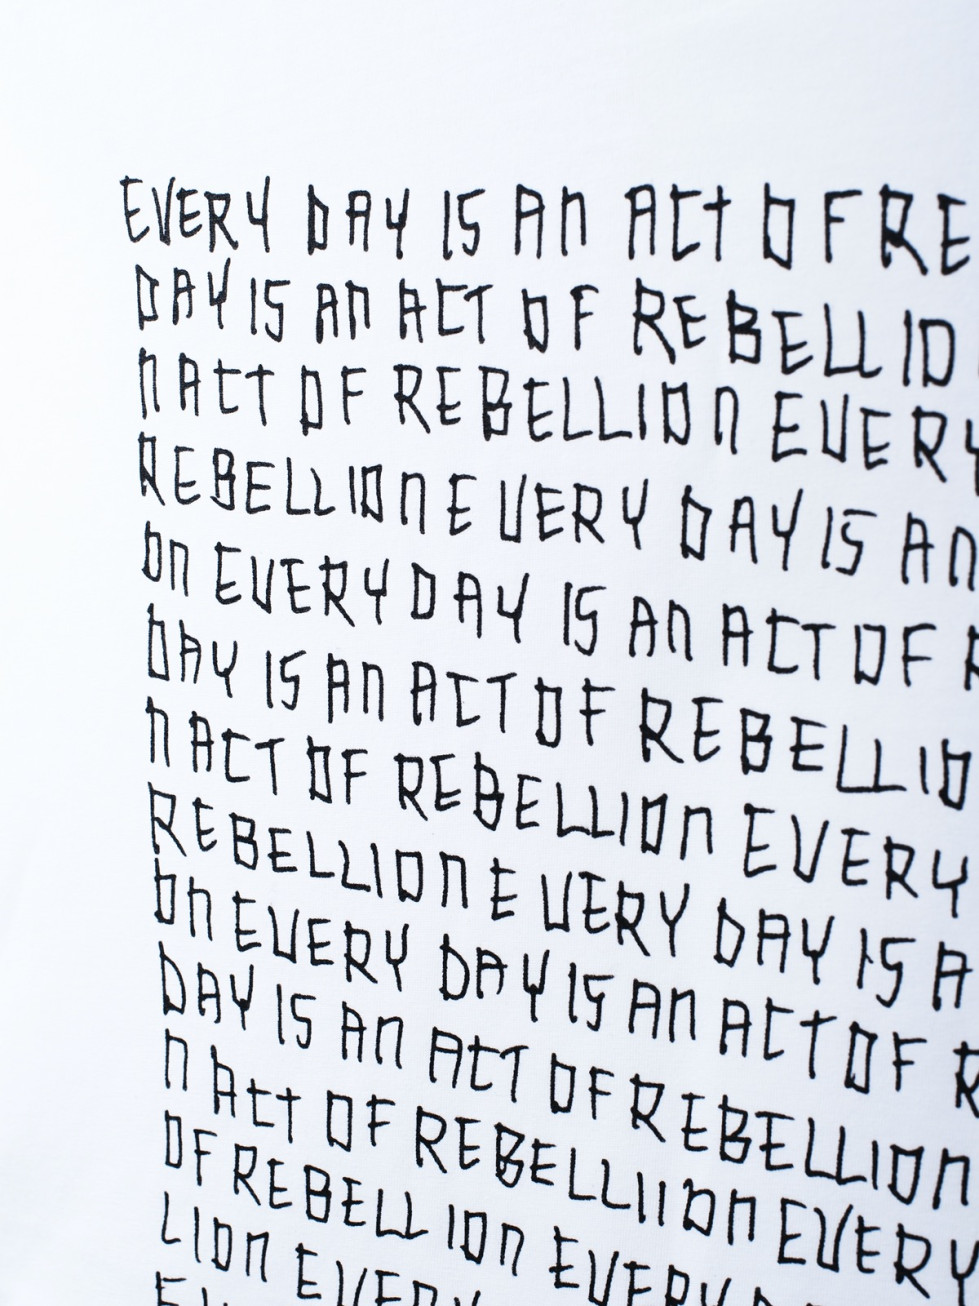 EVERY DAY IS AN ACT OF RE
DAY IS AN ACT OF REBELLIO
N ACT OF REBELLION EVERY
REBELLION EVERY DAY IS AN
ON EVERY DAY IS AN ACT OF R
DAY IS AN ACT OF REBELLIO
N ACT OF REBELLION EVERY
REBELLION EVERY DAY IS A
ON EVERY DAY IS AN ACT OF R
DAY IS AN ACT OF REBELLION
N ACT OF REBELLIION EVERY
OF REBELLION EVERY D
LION EVERY